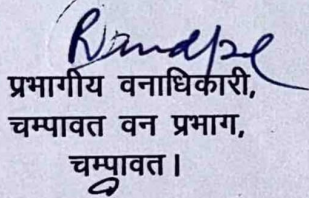 प्रभागीय वनाधिकारी,
चम्पावत वन प्रभाग,
चम्पावत।